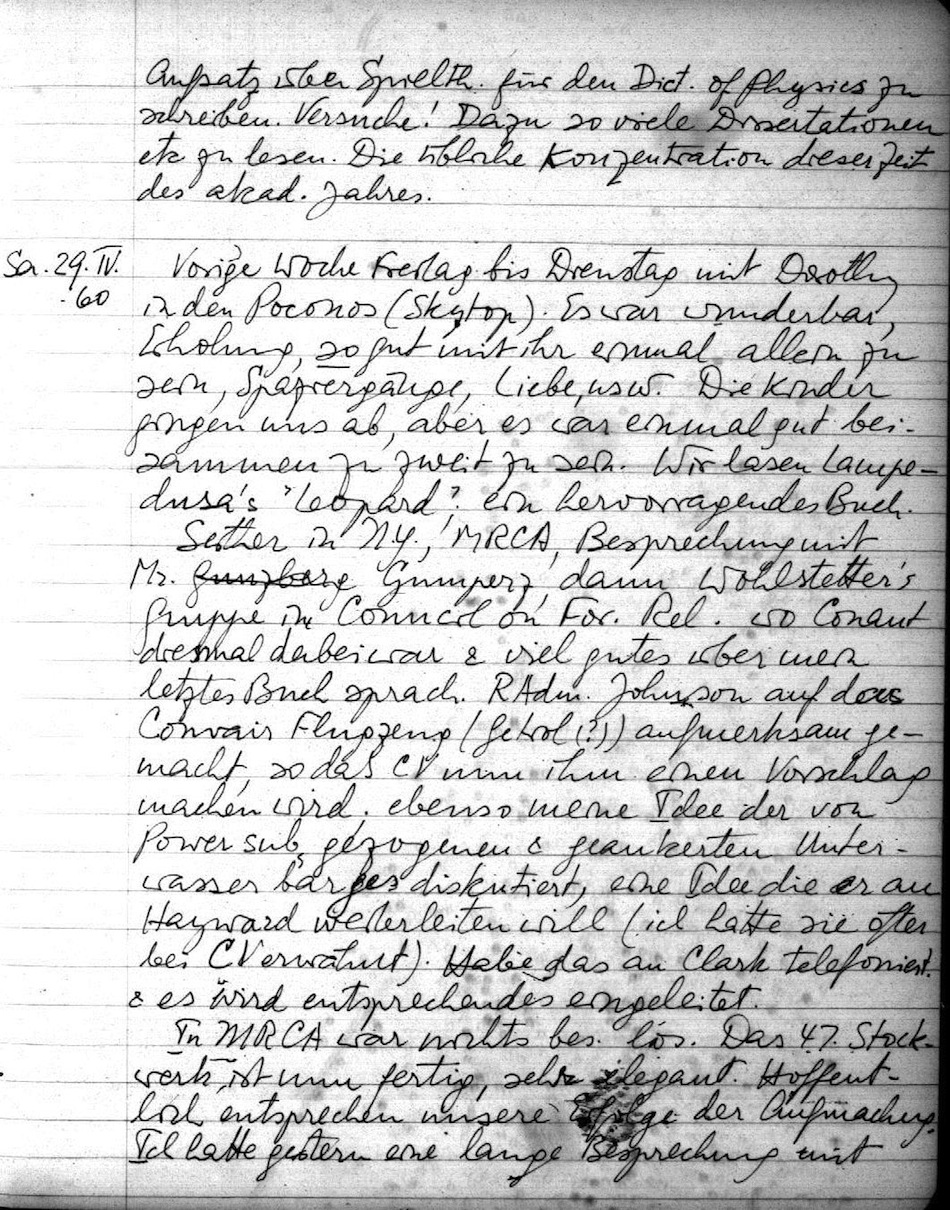 Aufsatz über Spielth. für den Dict. of Physics zu
schreiben. Versuche! Dazu so viele Dissertationen
etc zu lesen. Die übliche Konzentration dieser Zeit
des akad. Jahres.
Sa. 29. IV. Vorige Woche Freitag bis Dienstag mit Dorothy
.60 in den Poconos (Skytop). Es war wunderbar,
Erholung, so gut mit ihr einmal allein zu
sein, Spaziergänge, Liebe, usw. Die Kinder
gingen uns ab, aber es war einmal gut bei-
sammen zu zweit zu sein. Wir lasen Lampe-
dusa's "Leopard": ein hervorragendes Buch.
Seither in N.Y., MRCA, Besprechung mit
Mr. Gunzberg Gumperz, dann Wohlstetter's
Gruppe im Council on For. Rel. wo Conant
diesmal dabei war & viel gutes über mein
letztes Buch sprach. RAdm. Johnson auf das
Convair Flugzeug (?)) aufmerksam ge-
macht, so daß CV nun ihm einen Vorschlag
machen wird. ebenso meine Idee der von
Power sub gezogenen & geankerten Unter-
wasser barges diskutiert, eine Idee die er an
Hayward weiterleiten will (ich hatte sie öfter
bei CV erwähnt). Habe das an Clark telefoniert.
& es wird entsprechendes eingeleitet.
In MRCA war nichts bes. los. Das 47. Stock-
werk ist nun fertig, sehr elegant. Hoffent-
lich entsprechen unsere Erfolge der Aufmachung.
Ich hatte gestern eine lange Besprechung mit